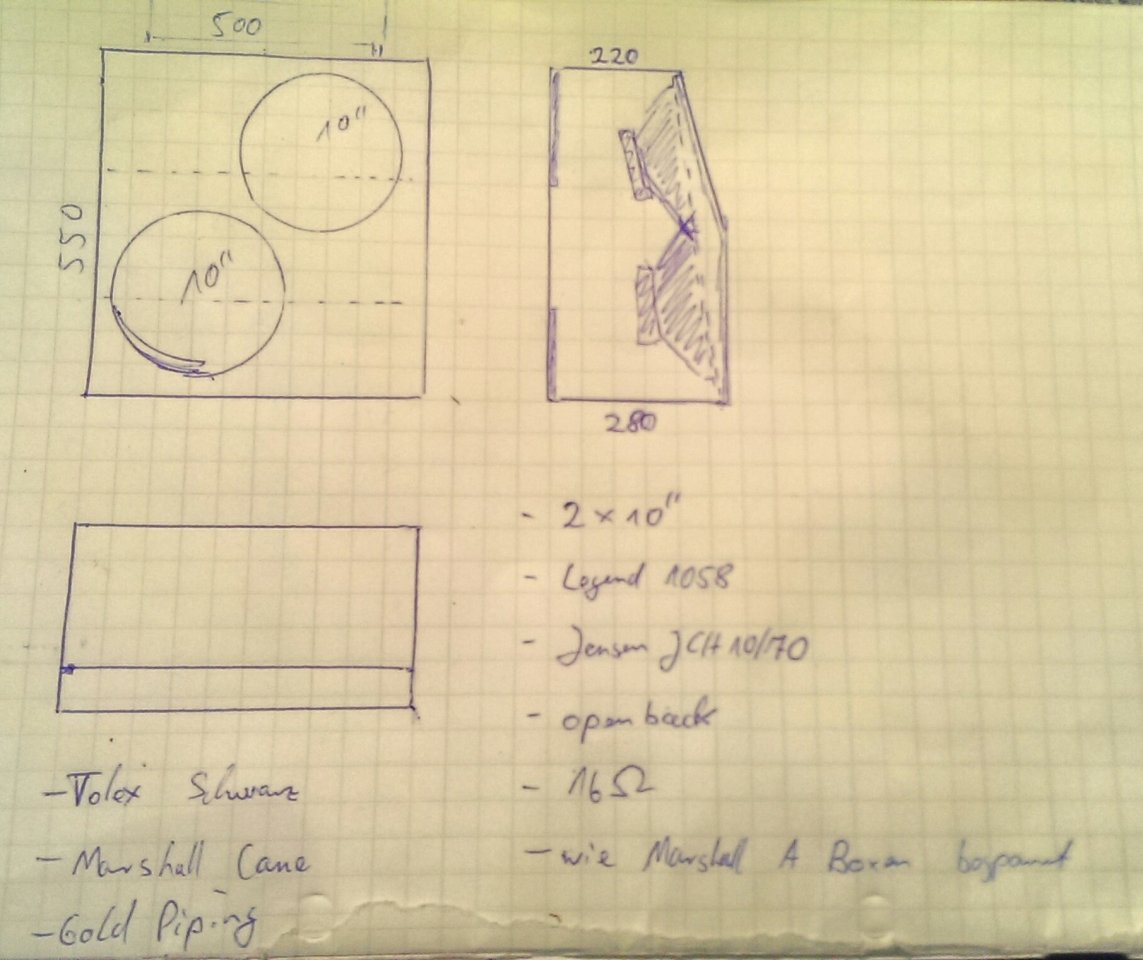 500
220
10"
550
10"
280
- 2 × 10"
- Legend 1058
- Jensen JCH 10/70
- open back
- Tolex Schwarz
- 16 Ω
- Marshall Cane
- wie Marshall A Boxen bespannt
- Gold Piping